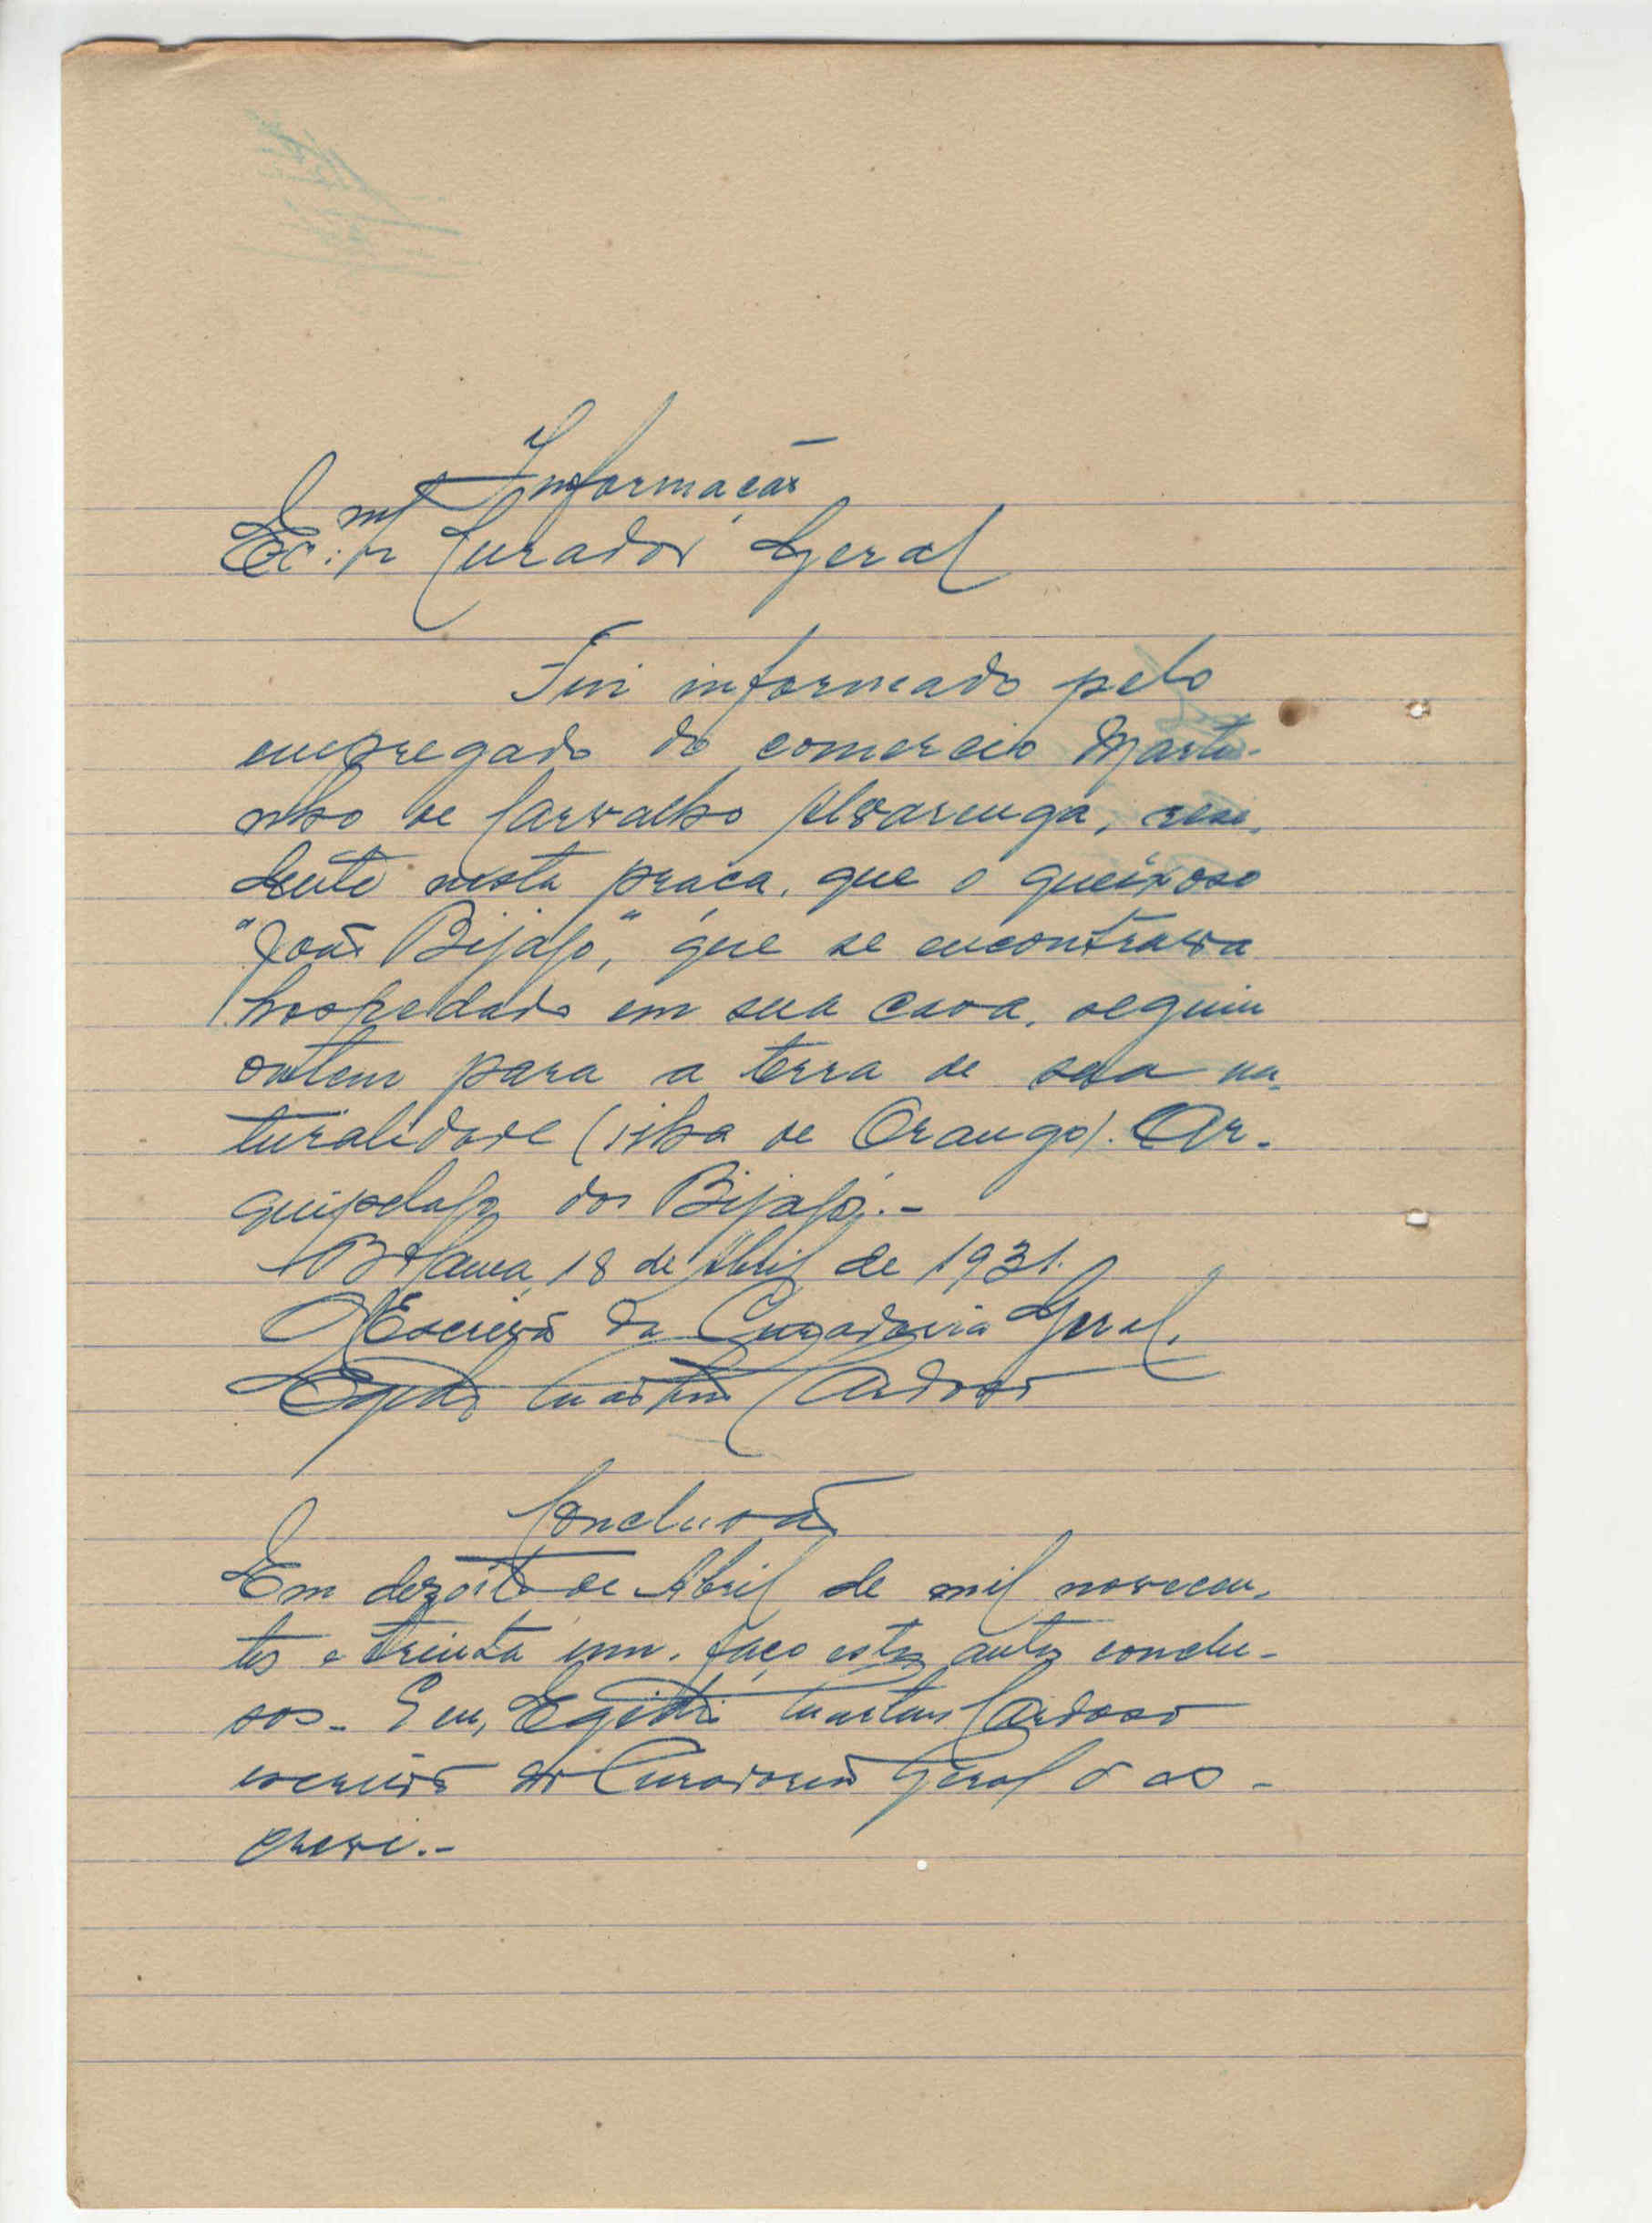 Informação
Ex.mo Sr. Curador Geral
Fui informado pelo
empregado do comercio Marti-
nho de Carvalho Alvarenga, resi-
dente nesta praça, que o queixoso
"João Bijagó", que se encontrava
hospedado em sua casa, seguiu
ontem para a terra de sua na-
turalidade (ilha de Orango). Ar-
quipelago dos Bijagós.-
Bolama, 18 de Abril de 1931.
O Escrivão da Curadoria Geral,
Egidio Martins Cardoso
Conclusão
Em dezoito de Abril de mil novecen-
tos e trinta um, faço estes autos conclu-
sos- Eu, Egidio Martins Cardoso
escrivão da Curadoria Geral o es-
crevi.-